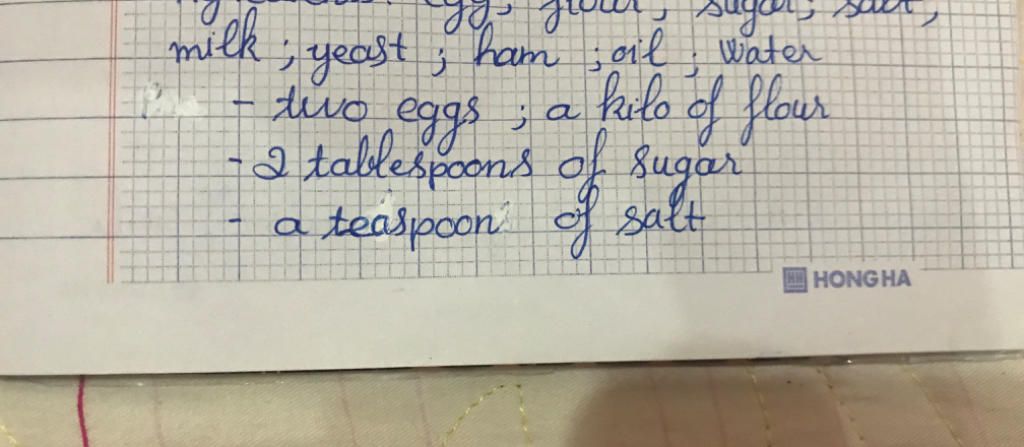 Ingredients: egg, flour, sugar, salt,
milk ; yeast ; ham ; oil ; water
- two eggs ; a kilo of flour
- 2 tablespoons of sugar
- a teaspoon of salt
HONG HA